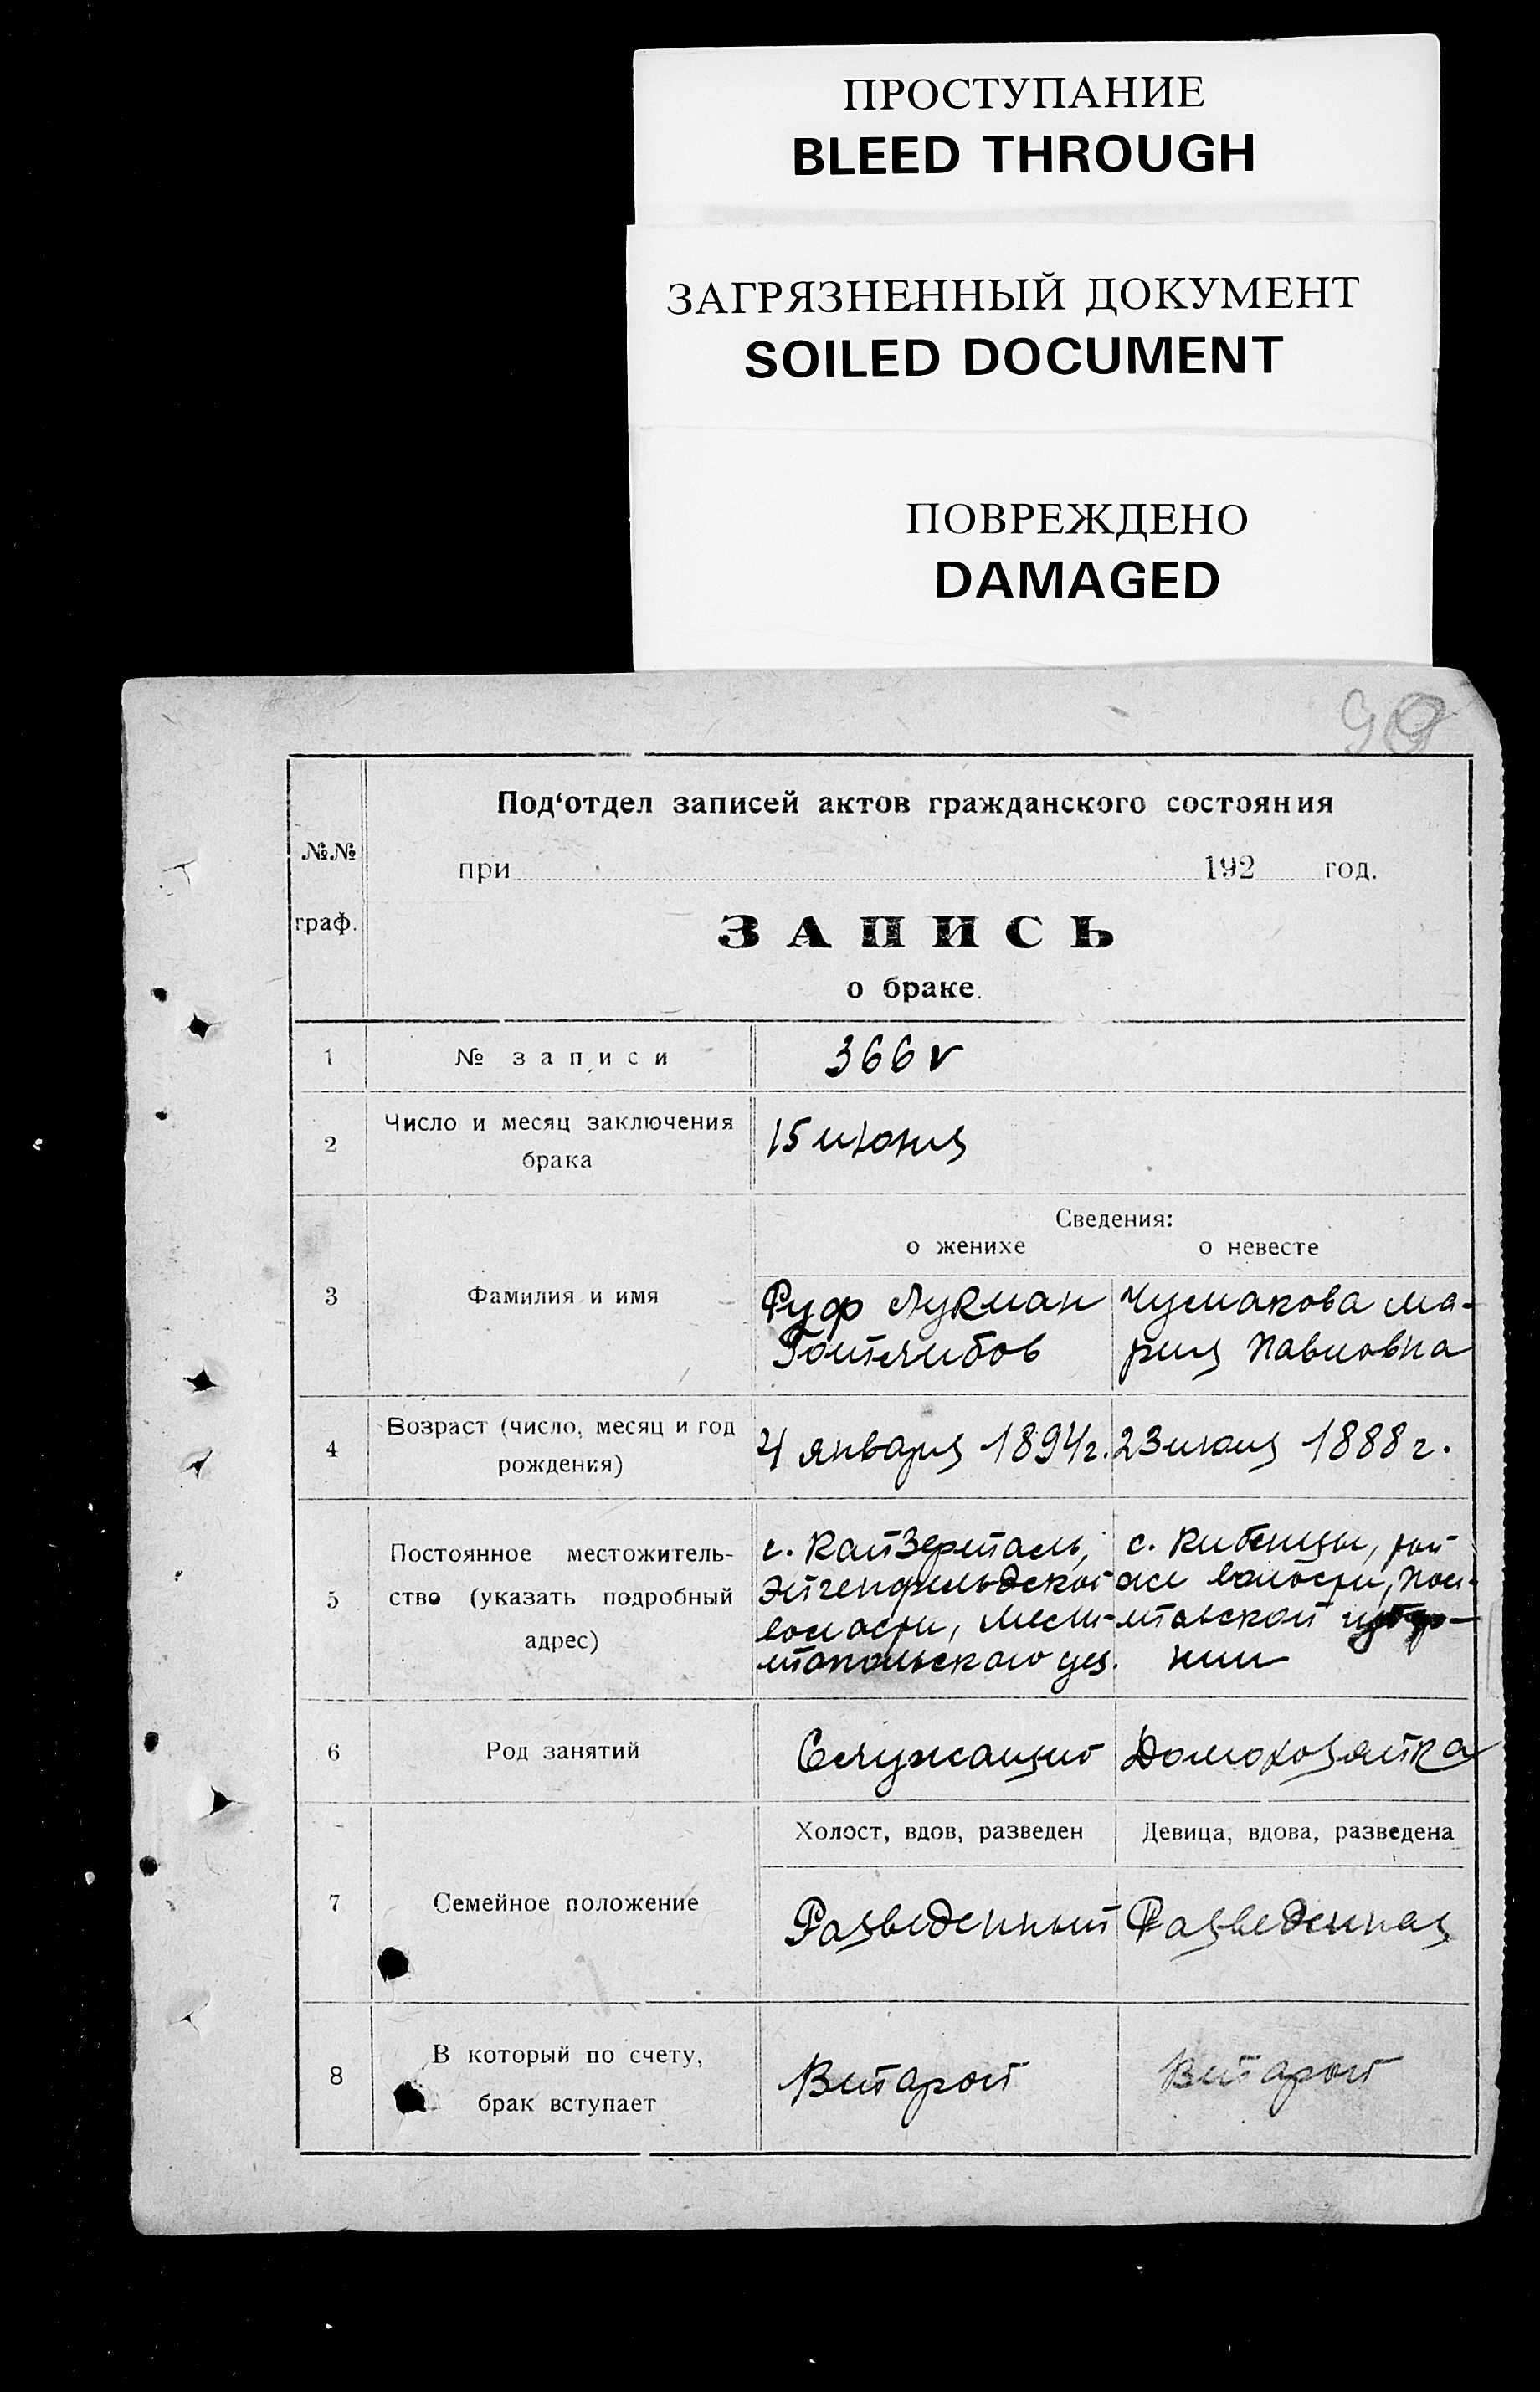 ПРОСТУПАНИЕ
BLEED THROUGH
ЗАГРЯЗНЕННЫЙ ДОКУМЕНТ
SOILED DOCUMENT
ПОВРЕЖДЕНО
DAMAGED
№№
граф.
Под‘отдел записей актов гражданского состояния
при 192 год.
ЗАПИСЬ
о браке.
1 № записи 366 v
2 Число и месяц заключения
брака
15 июня
Сведения:
о женихе о невесте
3 Фамилия и имя
Руф Лукман
Готлибов
Чумакова Ма-
рия Павловна
4 Возраст (число, месяц и год
рождения)
4 января 1894 г.
23 июля 1888 г.
5 Постоянное местожитель-
ство (указать подробный
адрес)
с. Кайзерталь,
Эйгенфельдской
волости, Мели-
топольского уез.
с. Кибенцы,
волости, Пол-
тавской губер-
нии
6 Род занятий
Служащий
Домохозяйка
Холост, вдов, разведен
Девица, вдова, разведена
7 Семейное положение
Разведенный
Разведенная
8 В который по счету,
брак вступает
Второй
Второй